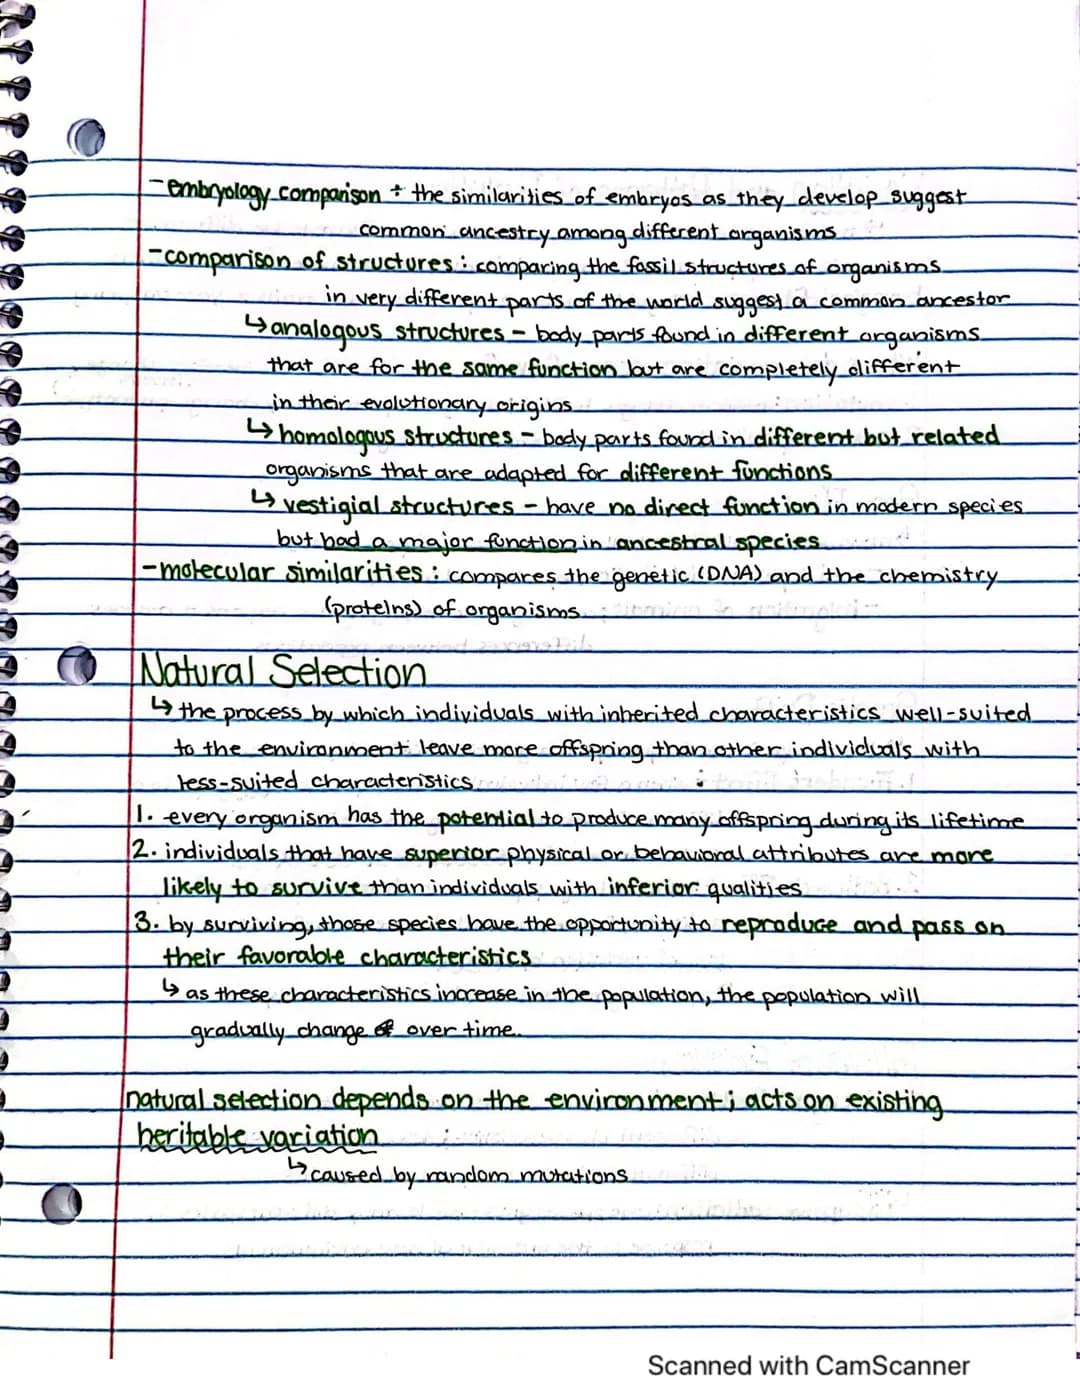 -embryology comparison : the similarities of embryos as they develop suggest
common ancestry among different organisms
-comparison of structures : comparing the fossil structures of organisms
in very different parts of the world suggest a common ancestor
↳ analogous structures - body parts found in different organisms
that are for the same function but are completely different
in their evolutionary origins
↳ homologous structures - body parts found in different but related
organisms that are adapted for different functions
↳ vestigial structures - have no direct function in modern species
but had a major function in ancestral species
-molecular similarities : compares the genetic (DNA) and the chemistry
(proteins) of organisms
Natural Selection
↳ the process by which individuals with inherited characteristics well-suited
to the environment leave more offspring than other individuals with
less-suited characteristics
1. every organism has the potential to produce many offspring during its lifetime
2. individuals that have superior physical or behavioral attributes are more
likely to survive than individuals with inferior qualities
3. by surviving, those species have the opportunity to reproduce and pass on
their favorable characteristics
↳ as these characteristics increase in the population, the population will
gradually change over time.
natural selection depends on the environment ; acts on existing
heritable variation
↳ caused by random mutations
Scanned with CamScanner